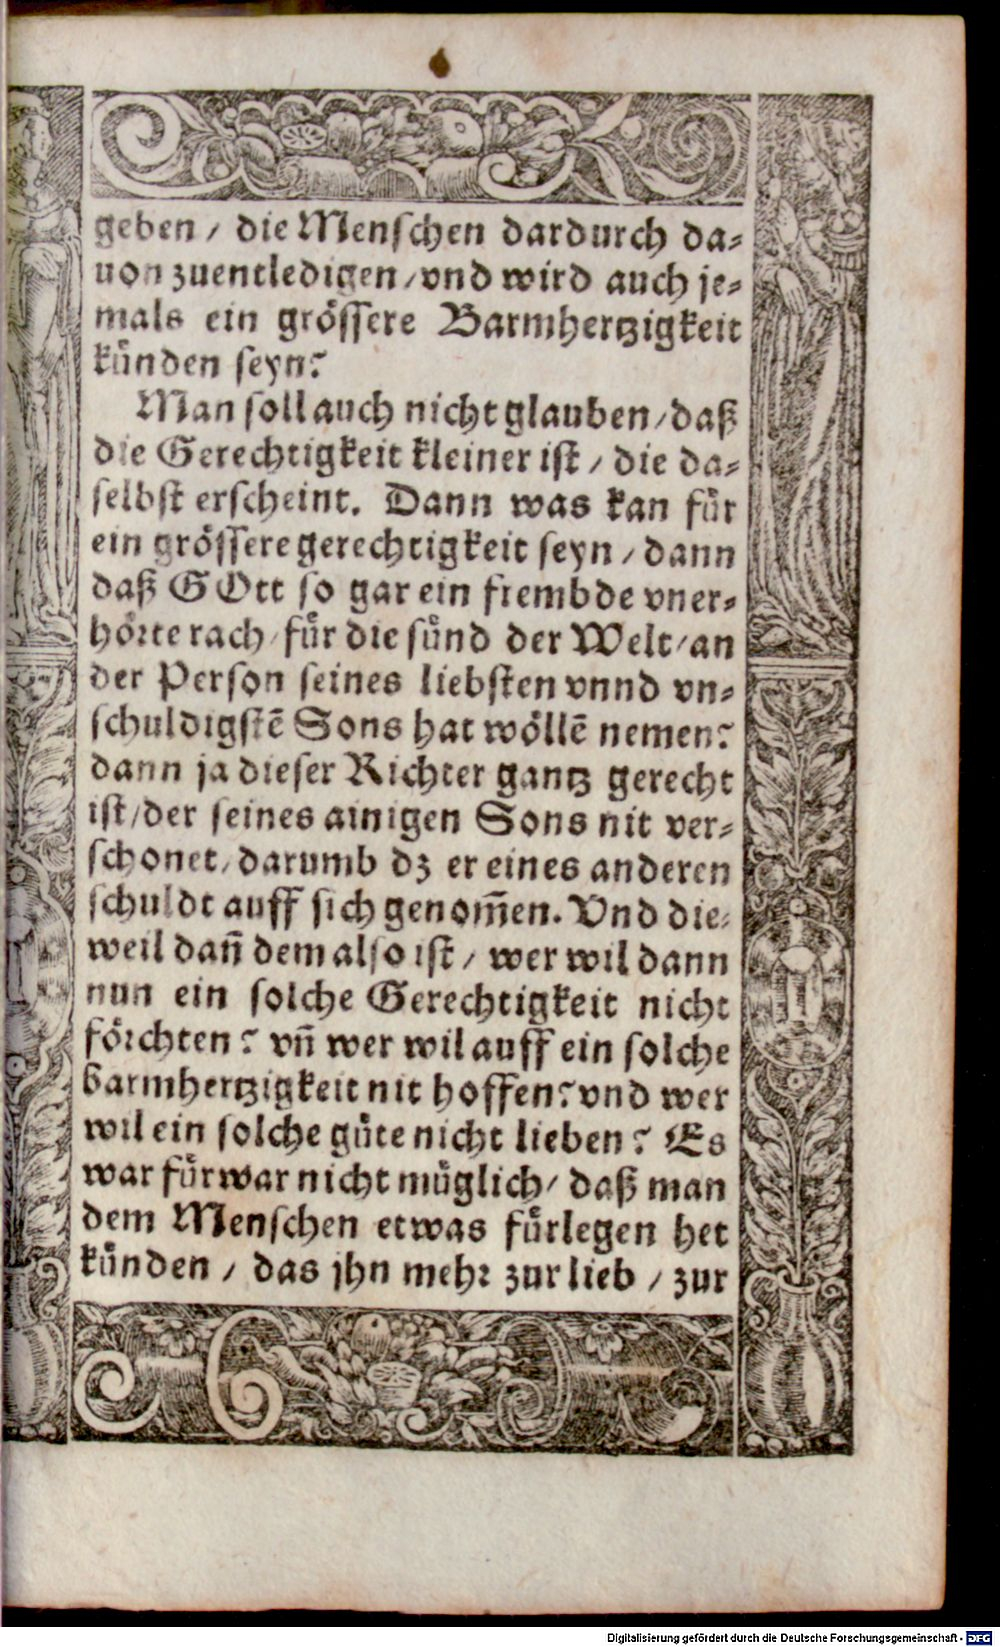 geben / die Menschen dardurch da-
uon zuentledigen / vnd wird auch je-
mals ein grössere Barmhertzigkeit
künden seyn?
Man soll auch nicht glauben / daß
die Gerechtigkeit kleiner ist / die da-
selbst erscheint. Dann was kan für
ein grössere gerechtigkeit seyn / dann
daß GOtt so gar ein frembde vner-
hörte rach / für die sünd der Welt / an
der Person seines liebsten vnnd vn-
schuldigstē Sons hat wöllē nemen?
dann ja dieser Richter gantz gerecht
ist / der seines ainigen Sons nit ver-
schonet / darumb dz er eines anderen
schuldt auff sich genom̄en. Vnd die-
weil dan̄ dem also ist / wer wil dann
nun ein solche Gerechtigkeit nicht
förchten? vn̄ wer wil auff ein solche
barmhertzigkeit nit hoffen? vnd wer
wil ein solche güte nicht lieben? Es
war fürwar nicht müglich / daß man
dem Menschen etwas fürlegen het
künden / das jhn mehr zur lieb / zur
Digitalisierung gefördert durch die Deutsche Forschungsgemeinschaft - DFG